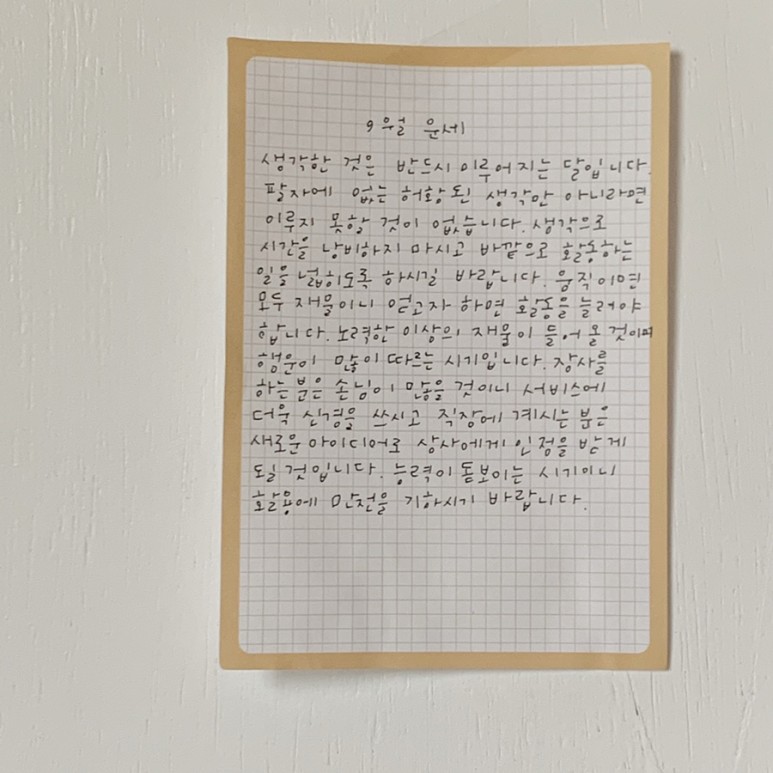 9월 운세
생각한 것은 반드시 이루어지는 달입니다.
팔자에 없는 허황된 생각만 아니라면
이루지 못할 것이 없습니다. 생각으로
시간을 낭비하지 마시고 바깥으로 활동하는
일을 넓히도록 하시길 바랍니다. 움직이면
모두 재물이니 얻고자 하면 활동을 늘려야
합니다. 노력한 이상의 재물이 들어올 것이며
행운이 많이 따르는 시기입니다. 장사를
하는 분은 손님이 많을 것이니 서비스에
더욱 신경을 쓰시고 직장에 계시는 분은
새로운 아이디어로 상사에게 인정을 받게
될 것입니다. 능력이 돋보이는 시기이니
활용에 만전을 기하시기 바랍니다.